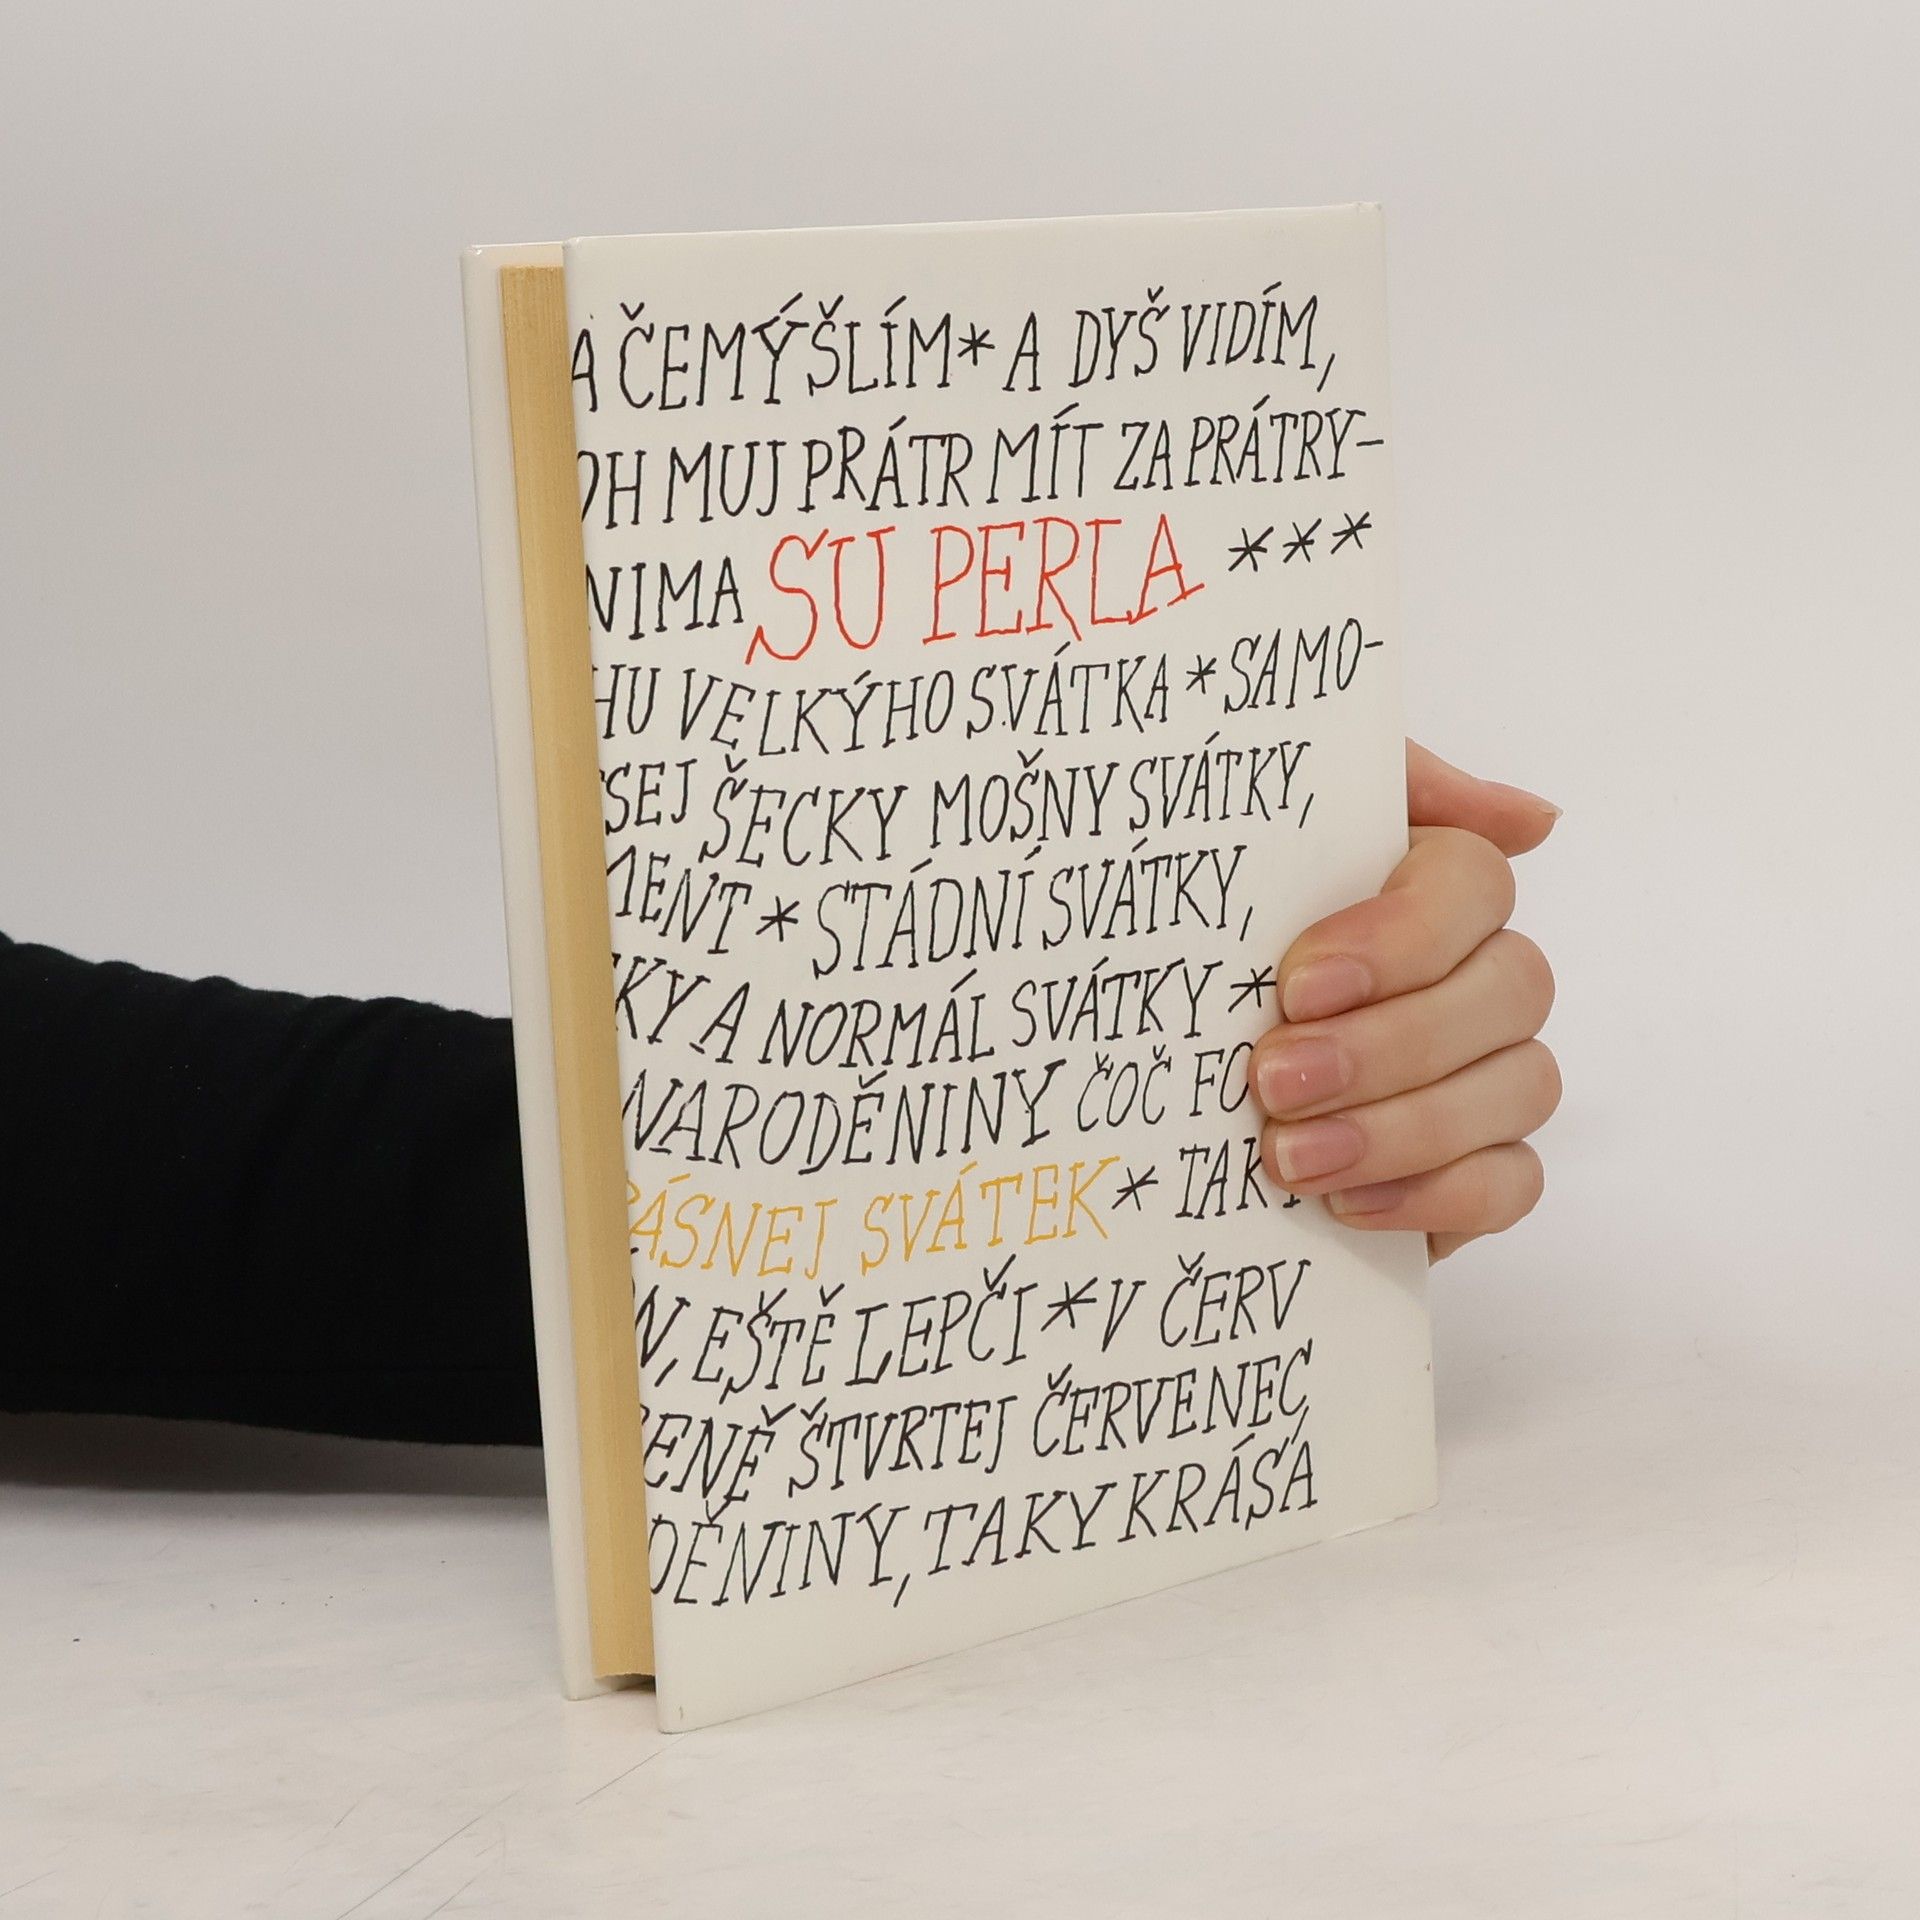 A ČEMÝŠLÍM * A DYŠ VIDÍM,
MUJ PRÁTR MÍT ZA PRÁTRY-
NIMA SU PERLA ***
HU VELKÝHO SVÁTKA * SAMO-
SEJ ŠECKY MOŠNY SVÁTKY,
MENT * STÁDNÍ SVÁTKY,
KY A NORMÁL SVÁTKY *
NARODĚNINY ČOČ FO
ÁSNEJ SVÁTEK * TAKY
N, EŠTĚ LEPČI * V ČERV
ENĚ ŠTVRTEJ ČERVENEC,
DĚNINY, TAKY KRÁSÁ